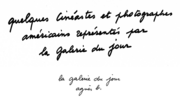 quelques cinéastes et photographes
américains représentés par
la galerie du jour
la galerie du jour
agnès b.